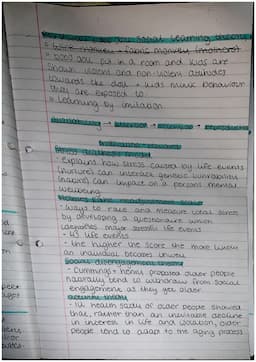 social learning theory
wire monkey + fabric monkey (mothers)
bobo doll put in a room and kids are
shown violent and non-violent attitudes
towards the doll + kids mimic behaviour
they are exposed to
Learning by imitation
explains how stress caused by life events
(nurture) can interact genetic vulnerability
(nature) can impact on a persons mental
wellbeing
Holmes Rahe readjustment scale
- ways to rate and measure total stress
by developing a questionnaire which
identifies major stressful life events
- 43 life events
- the higher the score the more likely
an individual becomes unwell
Social disengagement theory
- Cummings + henry proposed older people
naturally tend to withdraw from social
engagement as they get older
activity theory
- UK health study of older people showed
that, rather than an inevitable decline
in interest in life and vocation, older
people tend to adapt to the aging process